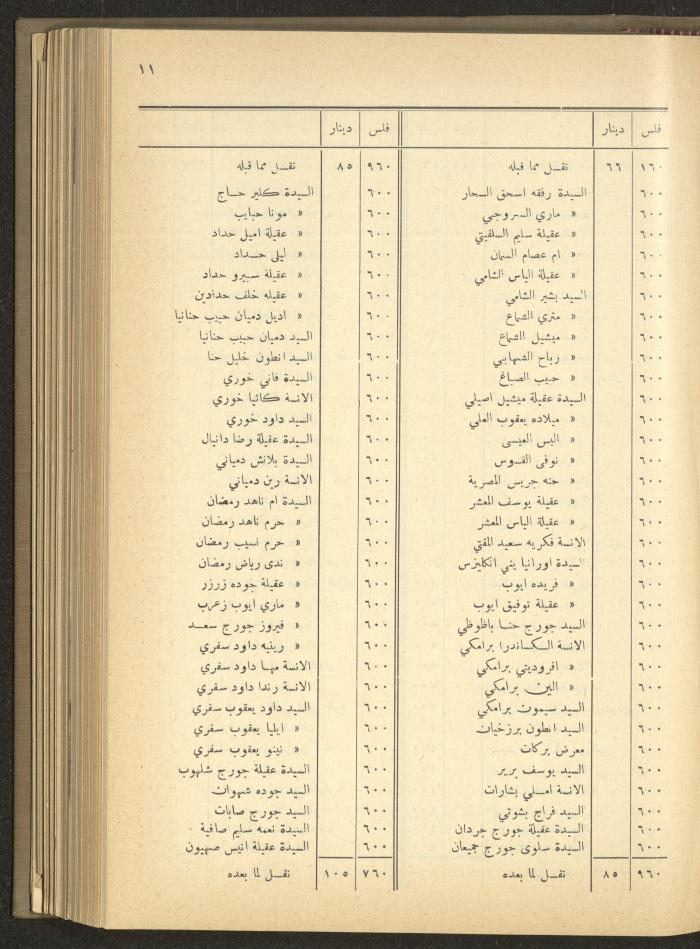 ١١
فلس دينار
١٦٠ ٦٦ نقـل مما قبله
٦٠٠ السيدة رفقه اسحق السحار
٦٠٠ « ماري السروجي
٦٠٠ « عقيلة سليم السلفيتي
٦٠٠ « ام عصام السمان
٦٠٠ « عقيلة الياس الشامي
٦٠٠ السيد بشير الشامي
٦٠٠ « متري الشماع
٦٠٠ « ميشيل الشماع
٦٠٠ « رباح الشهابي
٦٠٠ « حبيب الصباغ
٦٠٠ السيدة عقيلة ميشيل اصيلي
٦٠٠ « ميلاده يعقوب العلي
٦٠٠ « اليس العيسى
٦٠٠ « نوفى القسوس
٦٠٠ « حنه جريس المصرية
٦٠٠ « عقيلة يوسف المعشر
٦٠٠ « عقيلة الياس المعشر
٦٠٠ الانسة فكريه سعيد المفتي
٦٠٠ السيدة اورانيا يني انكليزس
٦٠٠ « فريده ايوب
٦٠٠ « عقيلة توفيق ايوب
٦٠٠ السيد جورج حنا باظوظي
٦٠٠ الانسة الكساندرا برامكي
٦٠٠ « افروديتي برامكي
٦٠٠ « الين برامكي
٦٠٠ السيد سيمون برامكي
٦٠٠ السيد انطون برزخيات
٦٠٠ معرض بركات
٦٠٠ السيد يوسف برير
٦٠٠ الانسة امـلي بشارات
٦٠٠ السيد فراج بشوتي
٦٠٠ السيدة عقيلة جورج جردان
٦٠٠ السيدة سلوى جورج جميعان
٩٦٠ ٨٥ نقـل لما بعده
فلس دينار
٩٦٠ ٨٥ نقـل مما قبله
٦٠٠ السيدة كلير حـاج
٦٠٠ « مونا حبايب
٦٠٠ « عقيلة اميل حداد
٦٠٠ « ليلى حـداد
٦٠٠ « عقيلة سبيرو حداد
٦٠٠ « عقيله خلف حدادين
٦٠٠ « اديل دميان حبيب حنانيا
٦٠٠ السيد دميان حبيب حنانيا
٦٠٠ السيد انطون خليل حنا
٦٠٠ السيدة فاني خوري
٦٠٠ الانسة كاتيا خوري
٦٠٠ السيد داود خوري
٦٠٠ السيدة عقيلة رضا دانيال
٦٠٠ السيدة بلانش دمياني
٦٠٠ الانسة رين دمياني
٦٠٠ السيدة ام ناهد رمضان
٦٠٠ « حرم ناهد رمضان
٦٠٠ « حرم نسيب رمضان
٦٠٠ « ندى رياض رمضان
٦٠٠ « عقيلة جوده زرزر
٦٠٠ « ماري ايوب زعرب
٦٠٠ « فيروز جورج سعـد
٦٠٠ « رينيه داود سفري
٦٠٠ الانسة مهـا داود سفري
٦٠٠ الانسة رندا داود سفري
٦٠٠ السيد داود يعقوب سفري
٦٠٠ « ايليا يعقوب سفري
٦٠٠ « نينو يعقوب سفري
٦٠٠ السيدة عقيلة جورج شلهوب
٦٠٠ السيد جوده شهوان
٦٠٠ السيد جورج صابات
٦٠٠ السيدة نعمه سليم صافية
٦٠٠ السيدة عقيلة انيس صهيون
٧٦٠ ١٠٥ نقـل لما بعده